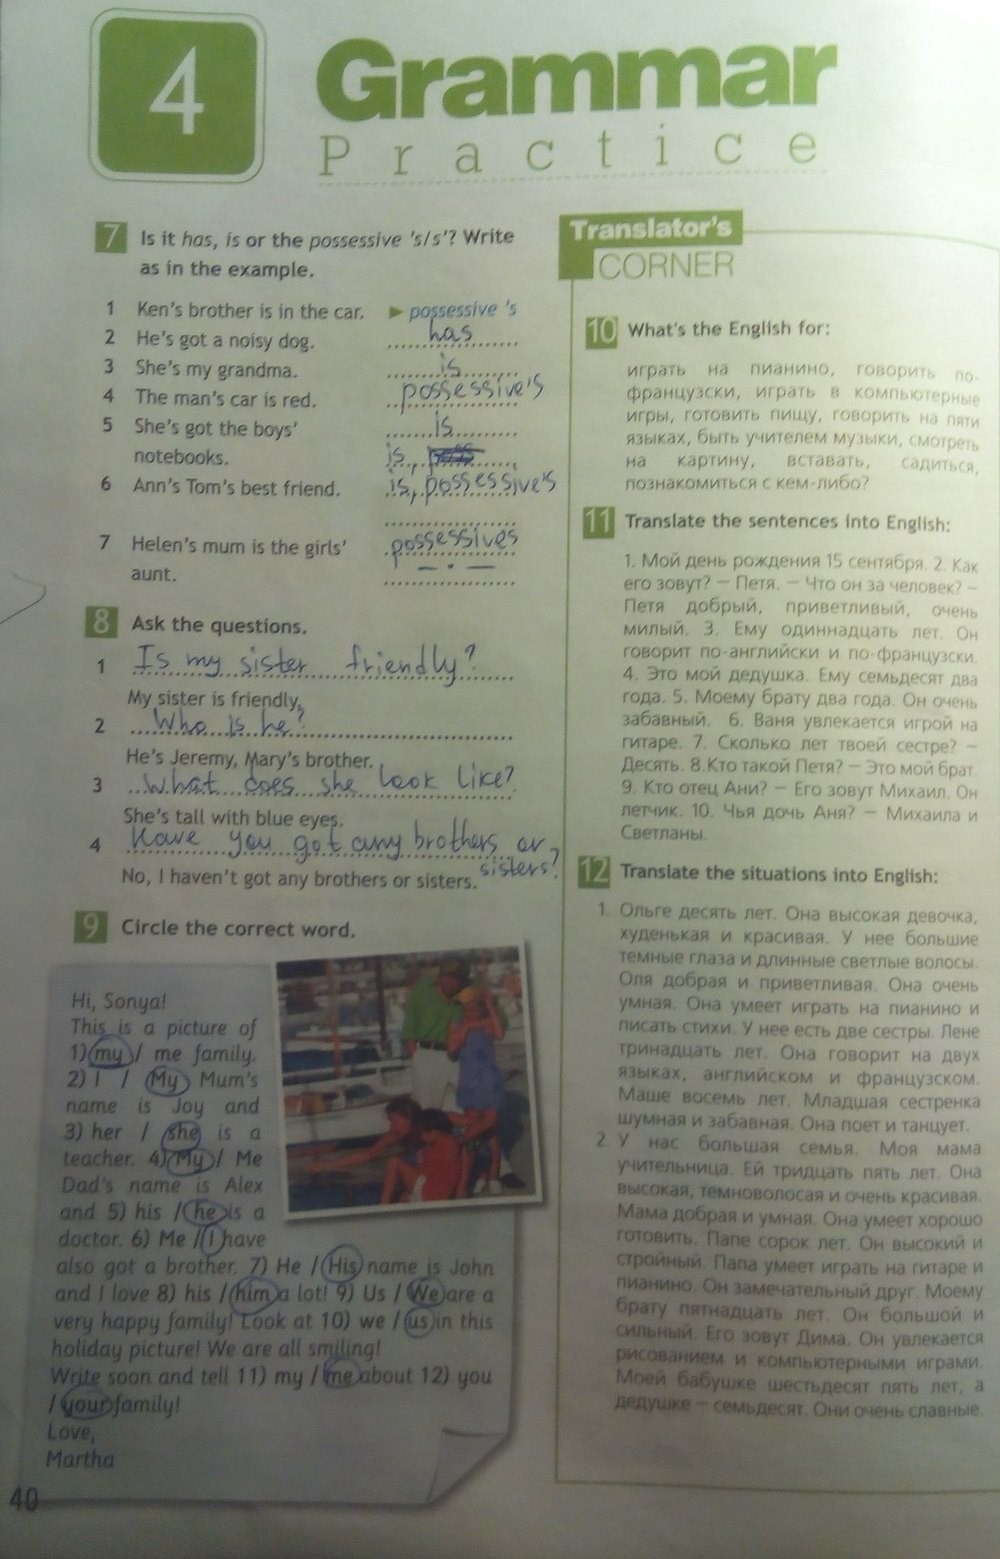 4
Grammar
Practice
7 Is it has, is or the possessive 's/s'? Write
as in the example.
1 Ken's brother is in the car. ► possessive 's
2 He's got a noisy dog. has
3 She's my grandma. is
4 The man's car is red. possessive's
5 She's got the boys' is
notebooks. is,
6 Ann's Tom's best friend. is, possessive's
7 Helen's mum is the girls' possessives
aunt. – . –
8 Ask the questions.
1 Is my sister friendly?
My sister is friendly.
2 Who is he?
He's Jeremy, Mary's brother.
3 What does she look like?
She's tall with blue eyes.
4 Have you got any brothers or
sisters?
No, I haven't got any brothers or sisters.
9 Circle the correct word.
Hi, Sonya!
This is a picture of
1) my / me family.
2) I / My Mum's
name is Joy and
3) her / she is a
teacher. 4) My / Me
Dad's name is Alex
and 5) his / he is a
doctor. 6) Me / I have
also got a brother. 7) He / His name is John
and I love 8) his / him a lot! 9) Us / We are a
very happy family! Look at 10) we / us in this
holiday picture! We are all smiling!
Write soon and tell 11) my / me about 12) you
/ your family!
Love,
Martha
40
Translator's
CORNER
10 What's the English for:
играть на пианино, говорить по-
французски, играть в компьютерные
игры, готовить пищу, говорить на пяти
языках, быть учителем музыки, смотреть
на картину, вставать, садиться,
познакомиться с кем-либо?
11 Translate the sentences into English:
1. Мой день рождения 15 сентября. 2. Как
его зовут? – Петя. – Что он за человек? –
Петя добрый, приветливый, очень
милый. 3. Ему одиннадцать лет. Он
говорит по-английски и по-французски.
4. Это мой дедушка. Ему семьдесят два
года. 5. Моему брату два года. Он очень
забавный. 6. Ваня увлекается игрой на
гитаре. 7. Сколько лет твоей сестре? –
Десять. 8.Кто такой Петя? – Это мой брат.
9. Кто отец Ани? – Его зовут Михаил. Он
летчик. 10. Чья дочь Аня? – Михаила и
Светланы.
12 Translate the situations into English:
1. Ольге десять лет. Она высокая девочка,
худенькая и красивая. У нее большие
темные глаза и длинные светлые волосы.
Оля добрая и приветливая. Она очень
умная. Она умеет играть на пианино и
писать стихи. У нее есть две сестры. Лене
тринадцать лет. Она говорит на двух
языках, английском и французском.
Маше восемь лет. Младшая сестренка
шумная и забавная. Она поет и танцует.
2. У нас большая семья. Моя мама
учительница. Ей тридцать пять лет. Она
высокая, темноволосая и очень красивая.
Мама добрая и умная. Она умеет хорошо
готовить. Папе сорок лет. Он высокий и
стройный. Папа умеет играть на гитаре и
пианино. Он замечательный друг. Моему
брату пятнадцать лет. Он большой и
сильный. Его зовут Дима. Он увлекается
рисованием и компьютерными играми.
Моей бабушке шестьдесят пять лет, а
дедушке – семьдесят. Они очень славные.